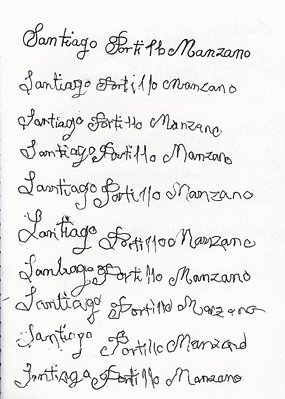 Santiago Portillo Manzano
Santiago Portillo Manzano
Santiago Portillo Manzano
Santiago Portillo Manzano
Santiago Portillo Manzano
Santiago Portillo Manzano
Santiago Portillo Manzano
Santiago Portillo Manzano
Santiago Portillo Manzano
Santiago Portillo Manzano